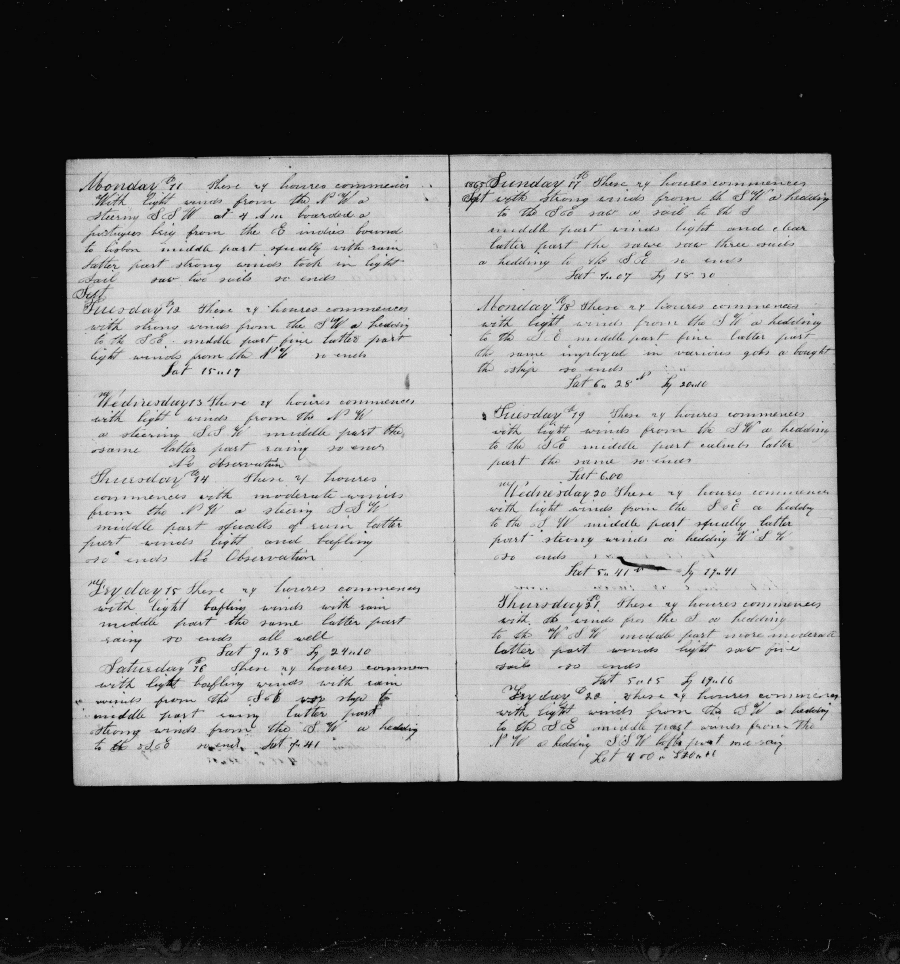 Monday th 11 These 24 houres commences
With light winds from the N W a
steering S S W at 4 A m boarded a
portugees brig from the E indies bound
to lisbon middle part squally with rain
latter part strong winds took in light
Sail saw two sails so ends
Sept
Tuesday th 12 These 24 houres commences
with strong winds from the S W a hedding
to the S E middle part fine latter part
light winds from the N W so ends
Lat 15 " 17
Wednesday 13 These 24 houres commences
with light winds from the N W
a steering S S W middle part the
same latter part rainy so ends
No observation
Thursday th 14 These 24 houres
commences with moderate winds
from the N W a steering S S W
middle part squalls of rain latter
part winds light and bafling
so ends No Observation
Fryday 15 These 24 houres commences
with light bafling winds with rain
middle part the same latter part
rainy so ends all well
Lat 9 " 38 Lg 24 " 10
Saturday th 16 These 24 houres commences
with light bafling winds with rain
winds from the S E ship to
middle part rainy latter part
strong winds from the S W a hedding
to the S E so ends Lat 7 " 41
1865 Sunday 17 th These 24 houres commences
Sept with strong winds from the S W a hedding
to the S E saw a sail to the S
middle part winds light and clear
latter part the same saw three sails
a hedding to the S E so ends
Lat 7 " 07 Lg 18 30
Monday th 18 These 24 houres commences
with light winds from the S W a hedding
to the S E middle part fine latter part
the same imployed in various jobs a bought
the ship so ends
Lat 6 " 28 N Lg 20 " 10
Tuesday th 19 These 24 houres commences
with light winds from the S W a hedding
to the S E middle part calmes latter
part the same so ends
Lat 6.00
Wednesday 20 These 24 houres commences
with light winds from the S E a hedding
to the S W middle part squally latter
part strong winds a hedding W S W
so ends
Lat 5 " 41 N Lg 19 " 41
Thursday 21 These 24 houres commences
with winds from the S a hedding
to the W S W middle part more moderate
latter part winds light saw five
sails so ends
Lat 5 " 15 Lg 19 " 16
Fryday 22 These 24 houres commences
with light winds from the S W a hedding
to the S E middle part winds from the
N W a hedding S S W latter part
Lat 4 00